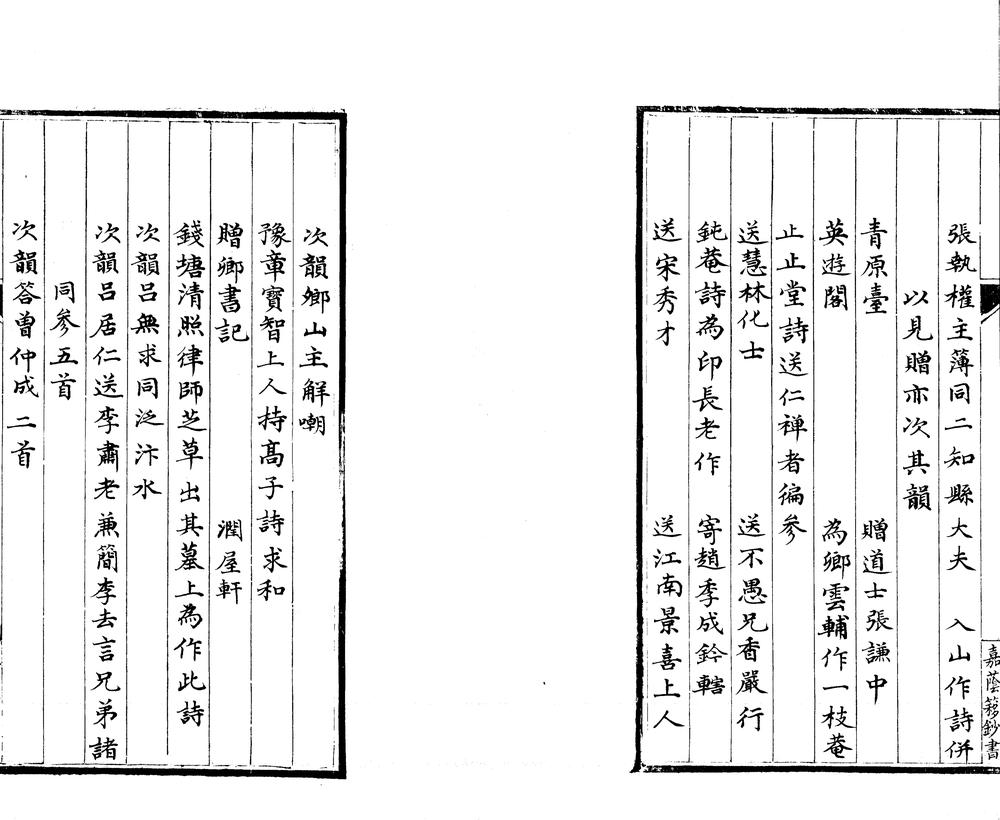 張執權主薄同二知縣大夫　入山作詩併
以見贈亦次其韻
青原臺　贈道士張謙中
英遊閣　為卿雲輔作一枝菴
止止堂詩送仁禅者徧參
送慧林化士　送不愚兄香嚴行
鈍菴詩為印長老作　寄趙季成鈐轄
送宋秀才　送江南景喜上人
嘉蔭簃鈔書
次韻鄉山主解嘲
豫章寶智上人持髙子詩求和
贈卿書記　潤屋軒
錢塘清照律師芝草出其墓上為作此詩
次韻呂無求同泛汴水
次韻呂居仁送李肅老兼簡李去言兄弟諸
同參五首
次韻答曾仲成二首